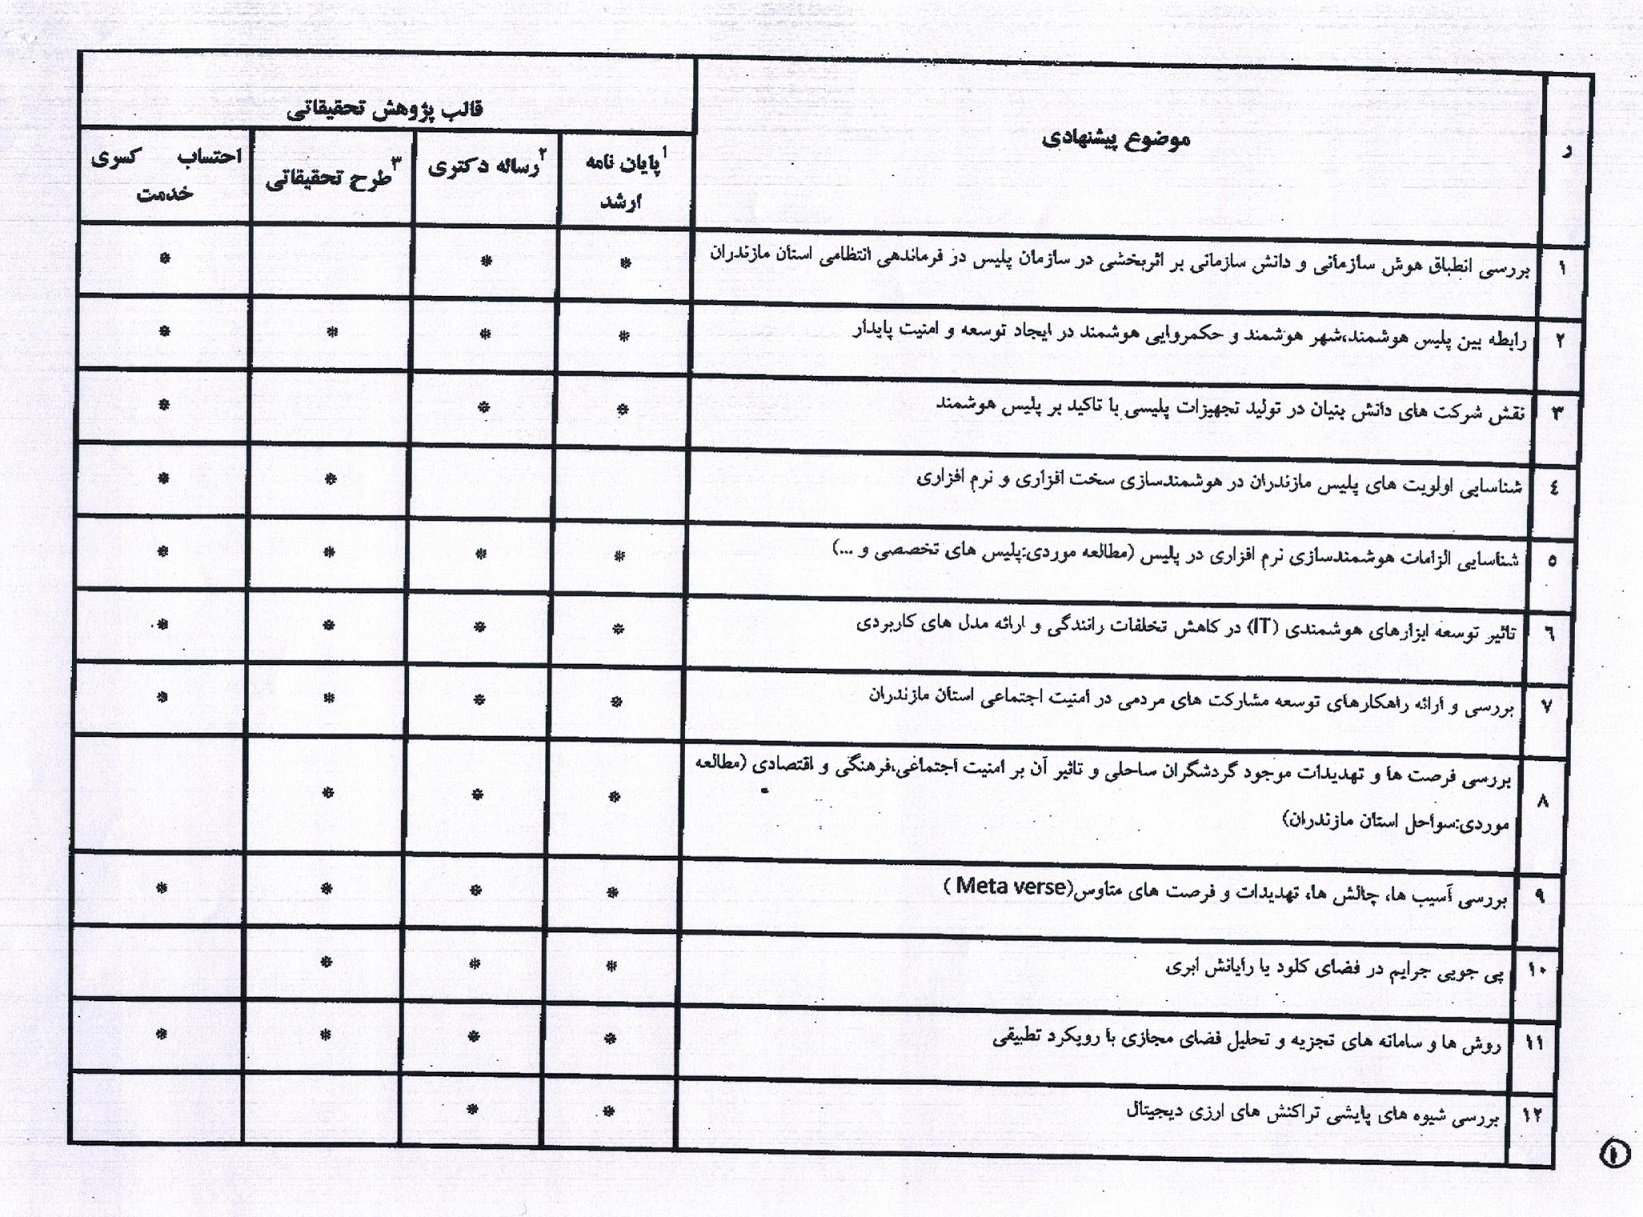 ر
موضوع پیشنهادی
قالب پژوهش تحقیقاتی
۱پایان نامه
ارشد
۲رساله دکتری
۳طرح تحقیقاتی
احتساب کسری
خدمت
۱ بررسی انطباق هوش سازمانی و دانش سازمانی بر اثربخشی در سازمان پلیس در فرماندهی انتظامی استان مازندران * * *
۲ رابطه بین پلیس هوشمند،شهر هوشمند و حکمروایی هوشمند در ایجاد توسعه و امنیت پایدار * * * *
۳ نقش شرکت های دانش بنیان در تولید تجهیزات پلیسی با تاکید بر پلیس هوشمند * * *
٤ شناسایی اولویت های پلیس مازندران در هوشمندسازی سخت افزاری و نرم افزاری * *
٥ شناسایی الزامات هوشمندسازی نرم افزاری در پلیس (مطالعه موردی:پلیس های تخصصی و ...) * * * *
٦ تاثیر توسعه ابزارهای هوشمندی (IT) در کاهش تخلفات رانندگی و ارائه مدل های کاربردی * * * *
۷ بررسی و ارائه راهکارهای توسعه مشارکت های مردمی در امنیت اجتماعی استان مازندران * * * *
۸ بررسی فرصت ها و تهدیدات موجود گردشگران ساحلی و تاثیر آن بر امنیت اجتماعی،فرهنگی و اقتصادی (مطالعه
موردی:سواحل استان مازندران) * * *
۹ بررسی آسیب ها، چالش ها، تهدیدات و فرصت های متاوس(Meta verse ) * * * *
۱۰ پی جویی جرایم در فضای کلود یا رایانش ابری * * *
۱۱ روش ها و سامانه های تجزیه و تحلیل فضای مجازی با رویکرد تطبیقی * * * *
۱۲ بررسی شیوه های پایشی تراکنش های ارزی دیجیتال * *
۱